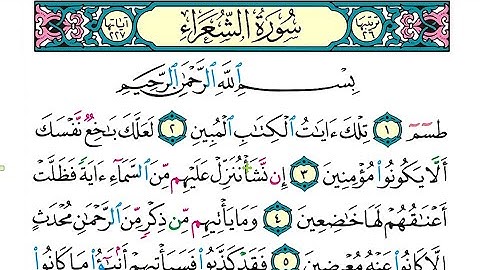 ترتيبها ٢٦ سُورَةُ الشُّعَرَاءِ آياتها ٢٢٧
بِسْمِ اللَّهِ الرَّحْمَٰنِ الرَّحِيمِ
طسٓمٓ ١ تِلْكَ ءَايَٰتُ الْكِتَٰبِ الْمُبِينِ ٢ لَعَلَّكَ بَٰخِعٌ نَّفْسَكَ
أَلَّا يَكُونُوا مُؤْمِنِينَ ٣ إِن نَّشَأْ نُنَزِّلْ عَلَيْهِم مِّنَ السَّمَآءِ ءَايَةً فَظَلَّتْ
أَعْنَٰقُهُمْ لَهَا خَٰضِعِينَ ٤ وَمَا يَأْتِيهِم مِّن ذِكْرٍ مِّنَ الرَّحْمَٰنِ مُحْدَثٍ
إِلَّا كَانُوا عَنْهُ مُعْرِضِينَ ٥ فَقَدْ كَذَّبُوا فَسَيَأْتِيهِمْ أَنۢبَٰٓؤُا مَا كَانُوا